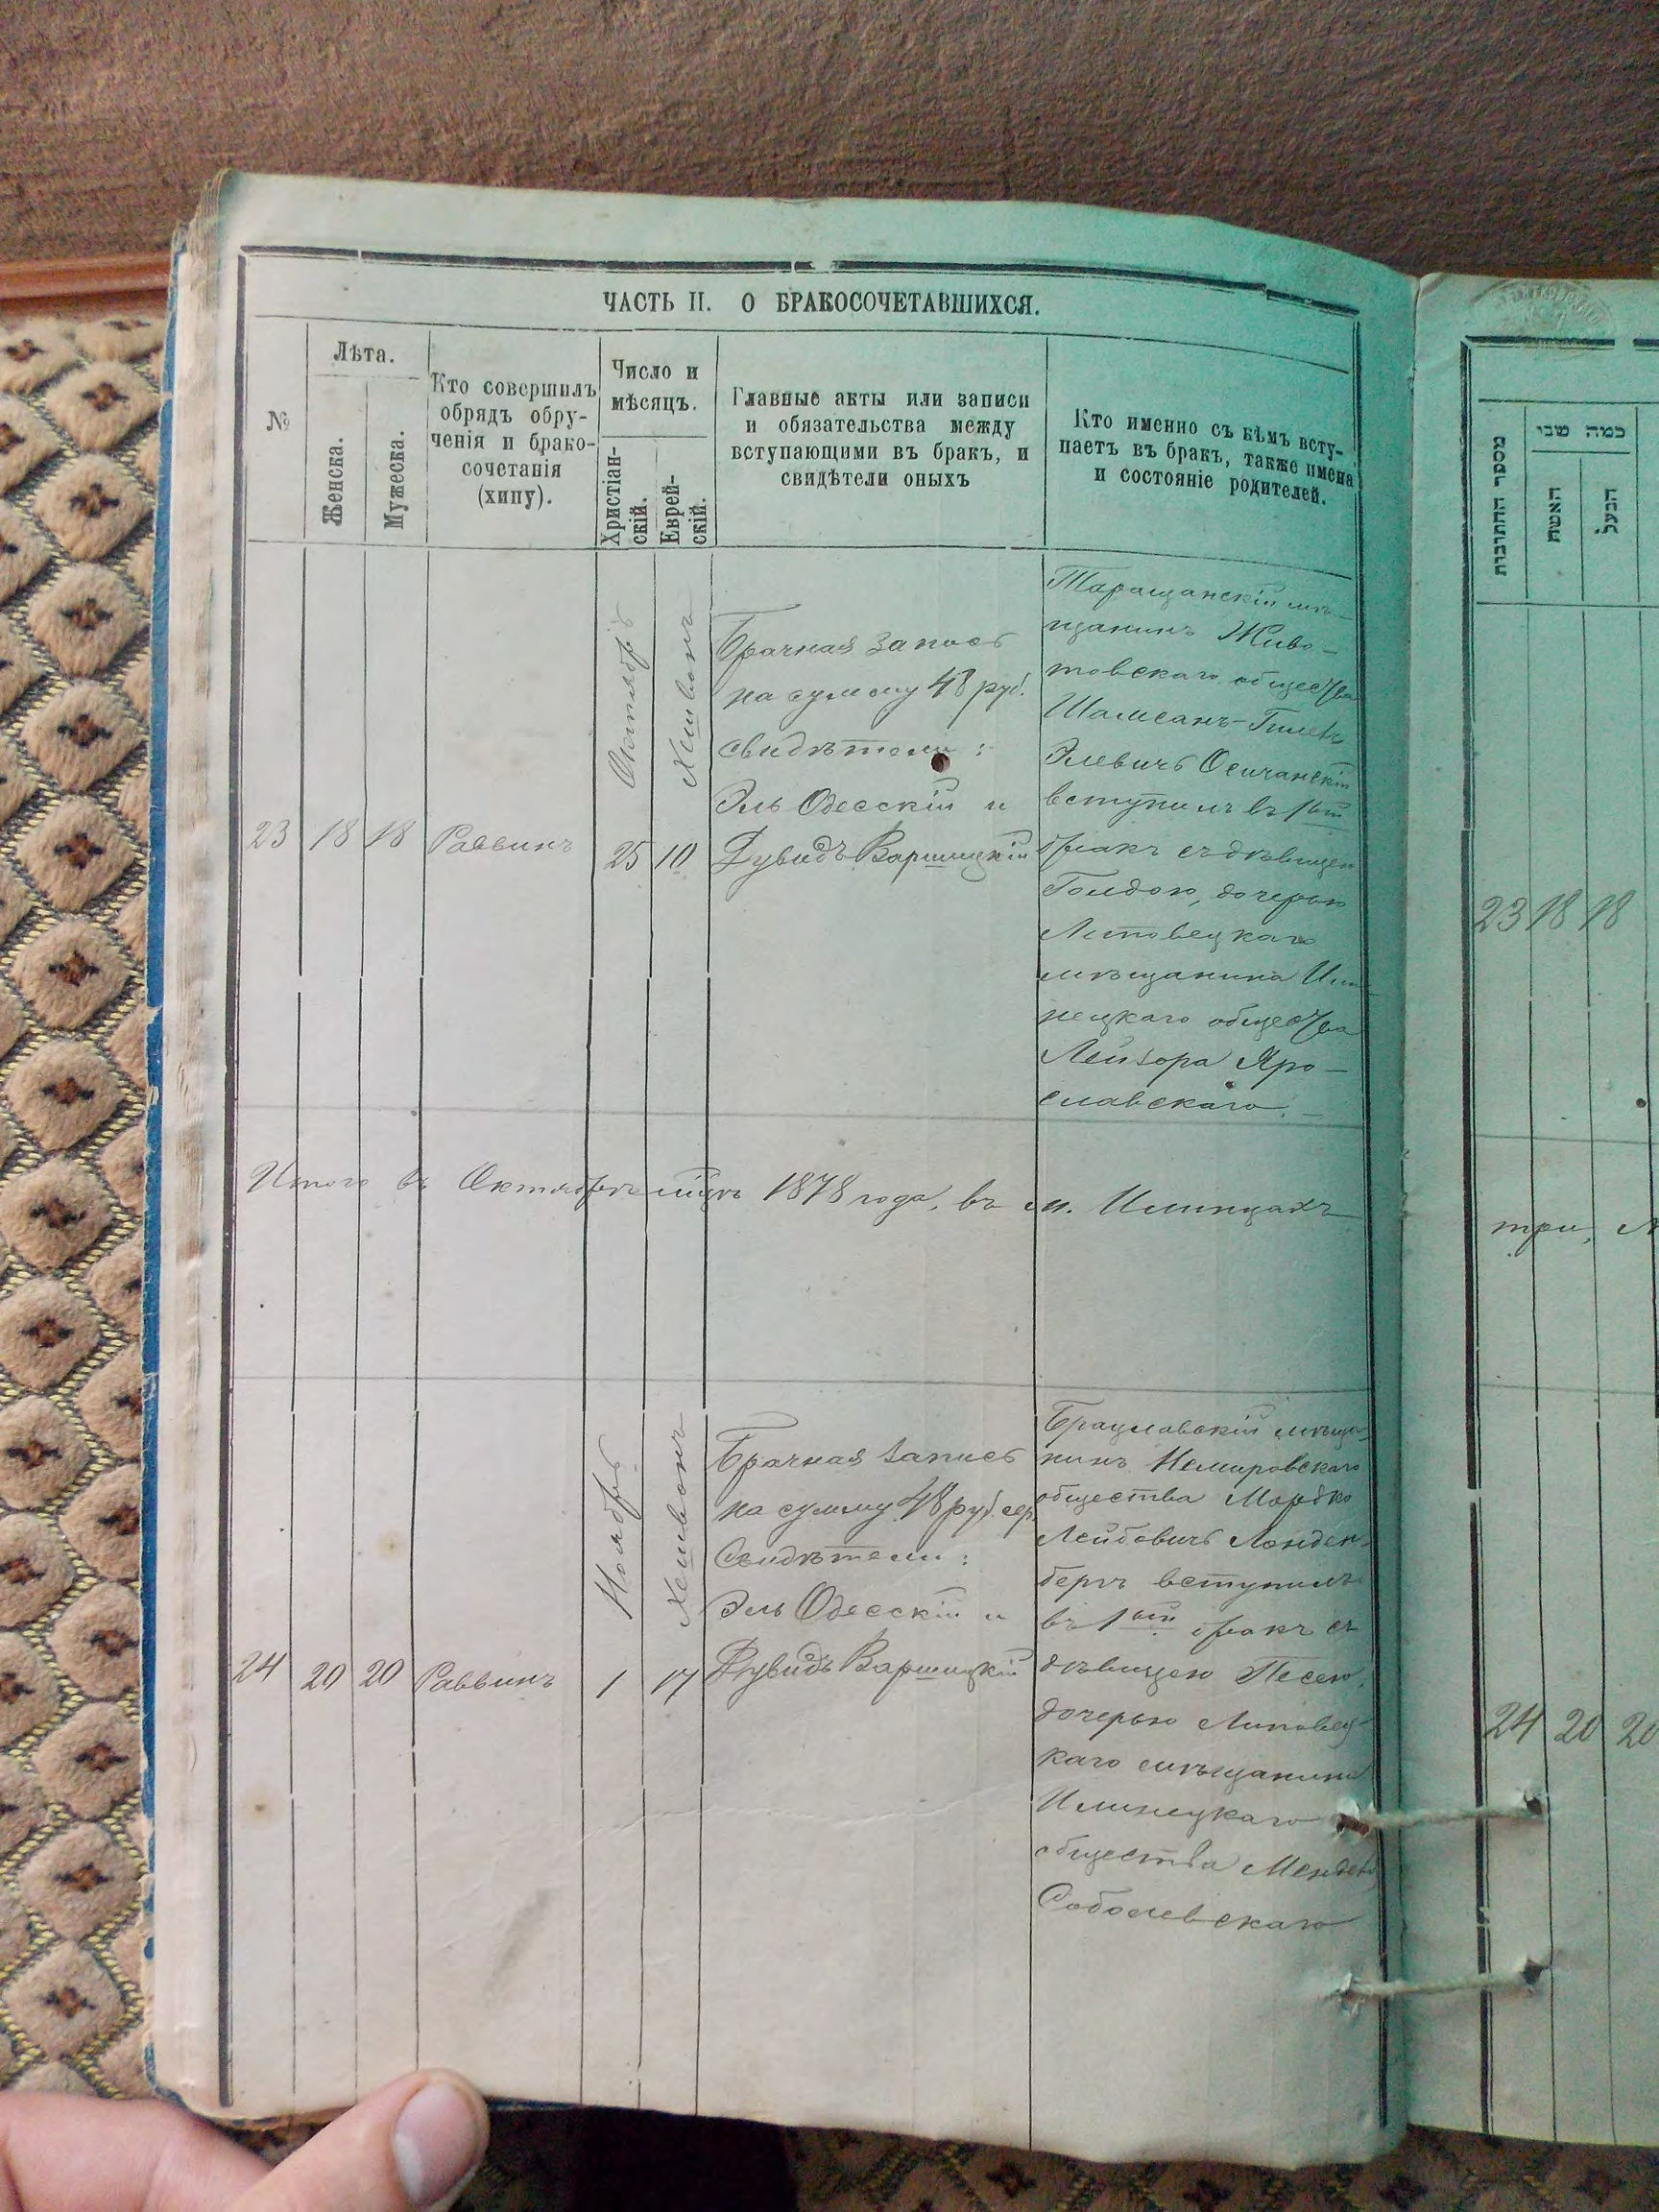 ЧАСТЬ II. О БРАКОСОЧЕТАВШИХСЯ.
№
Лѣта.
Женска.
Мужеска.
Кто совершилъ
обрядъ обру-
ченія и брако-
сочетанія
(хипу).
Число и
мѣсяцъ.
Христіан-
скій.
Еврей-
скій.
Главные акты или записи
и обязательства между
вступающими въ бракъ, и
свидѣтели оныхъ
Кто именно съ кѣмъ всту-
паетъ въ бракъ, также имена
и состояніе родителей.
23
18
18
Раввинъ
Октябрь
25
Хешвонъ
10
Брачная запись
на сумму 48 руб.
свидѣтели:
Эль Одесскій и
Дувидъ Варшицкій
Таращанскій мѣ-
щанинъ Живо-
товскаго общества
Шамсанъ-
Элевичъ Осичанскій
вступилъ въ 1ый
бракъ съ дѣвицею
Голдою, дочерью
Липовецкаго
мѣщанина Или-
нецкаго общества
Лейзора Яро-
славскаго.
Итого въ Октябрѣ мцѣ 1878 года, въ м. Илинцахъ
24
20
20
Раввинъ
Ноябрь
1
Хешвонъ
17
Брачная запись
на сумму 48 руб. сер.
Свидѣтели:
Эль Одесскій и
Дувидъ Варшицкій
Брацлавскій мѣща-
нинъ Немировскаго
общества Мордко
Лейбовичъ Лонден-
бергъ вступилъ
въ 1ый бракъ съ
дѣвицею Песею,
дочерью Липовец-
каго мѣщанина
Илинецкаго
общества Менделя
Соболевскаго
מספר החתונות
כמה שני
האשה
הבעל
23 18 18
три,
24 20 20